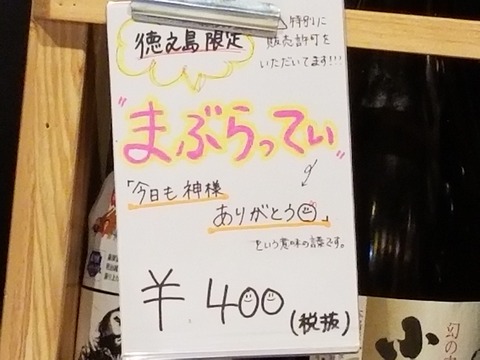 徳之島限定
特別に
販売許可を
いただいてます!!!
"まぶらってぃ"
「今日も神様
ありがとう☺」
という意味の言葉です。
¥400(税抜)
幻の
小